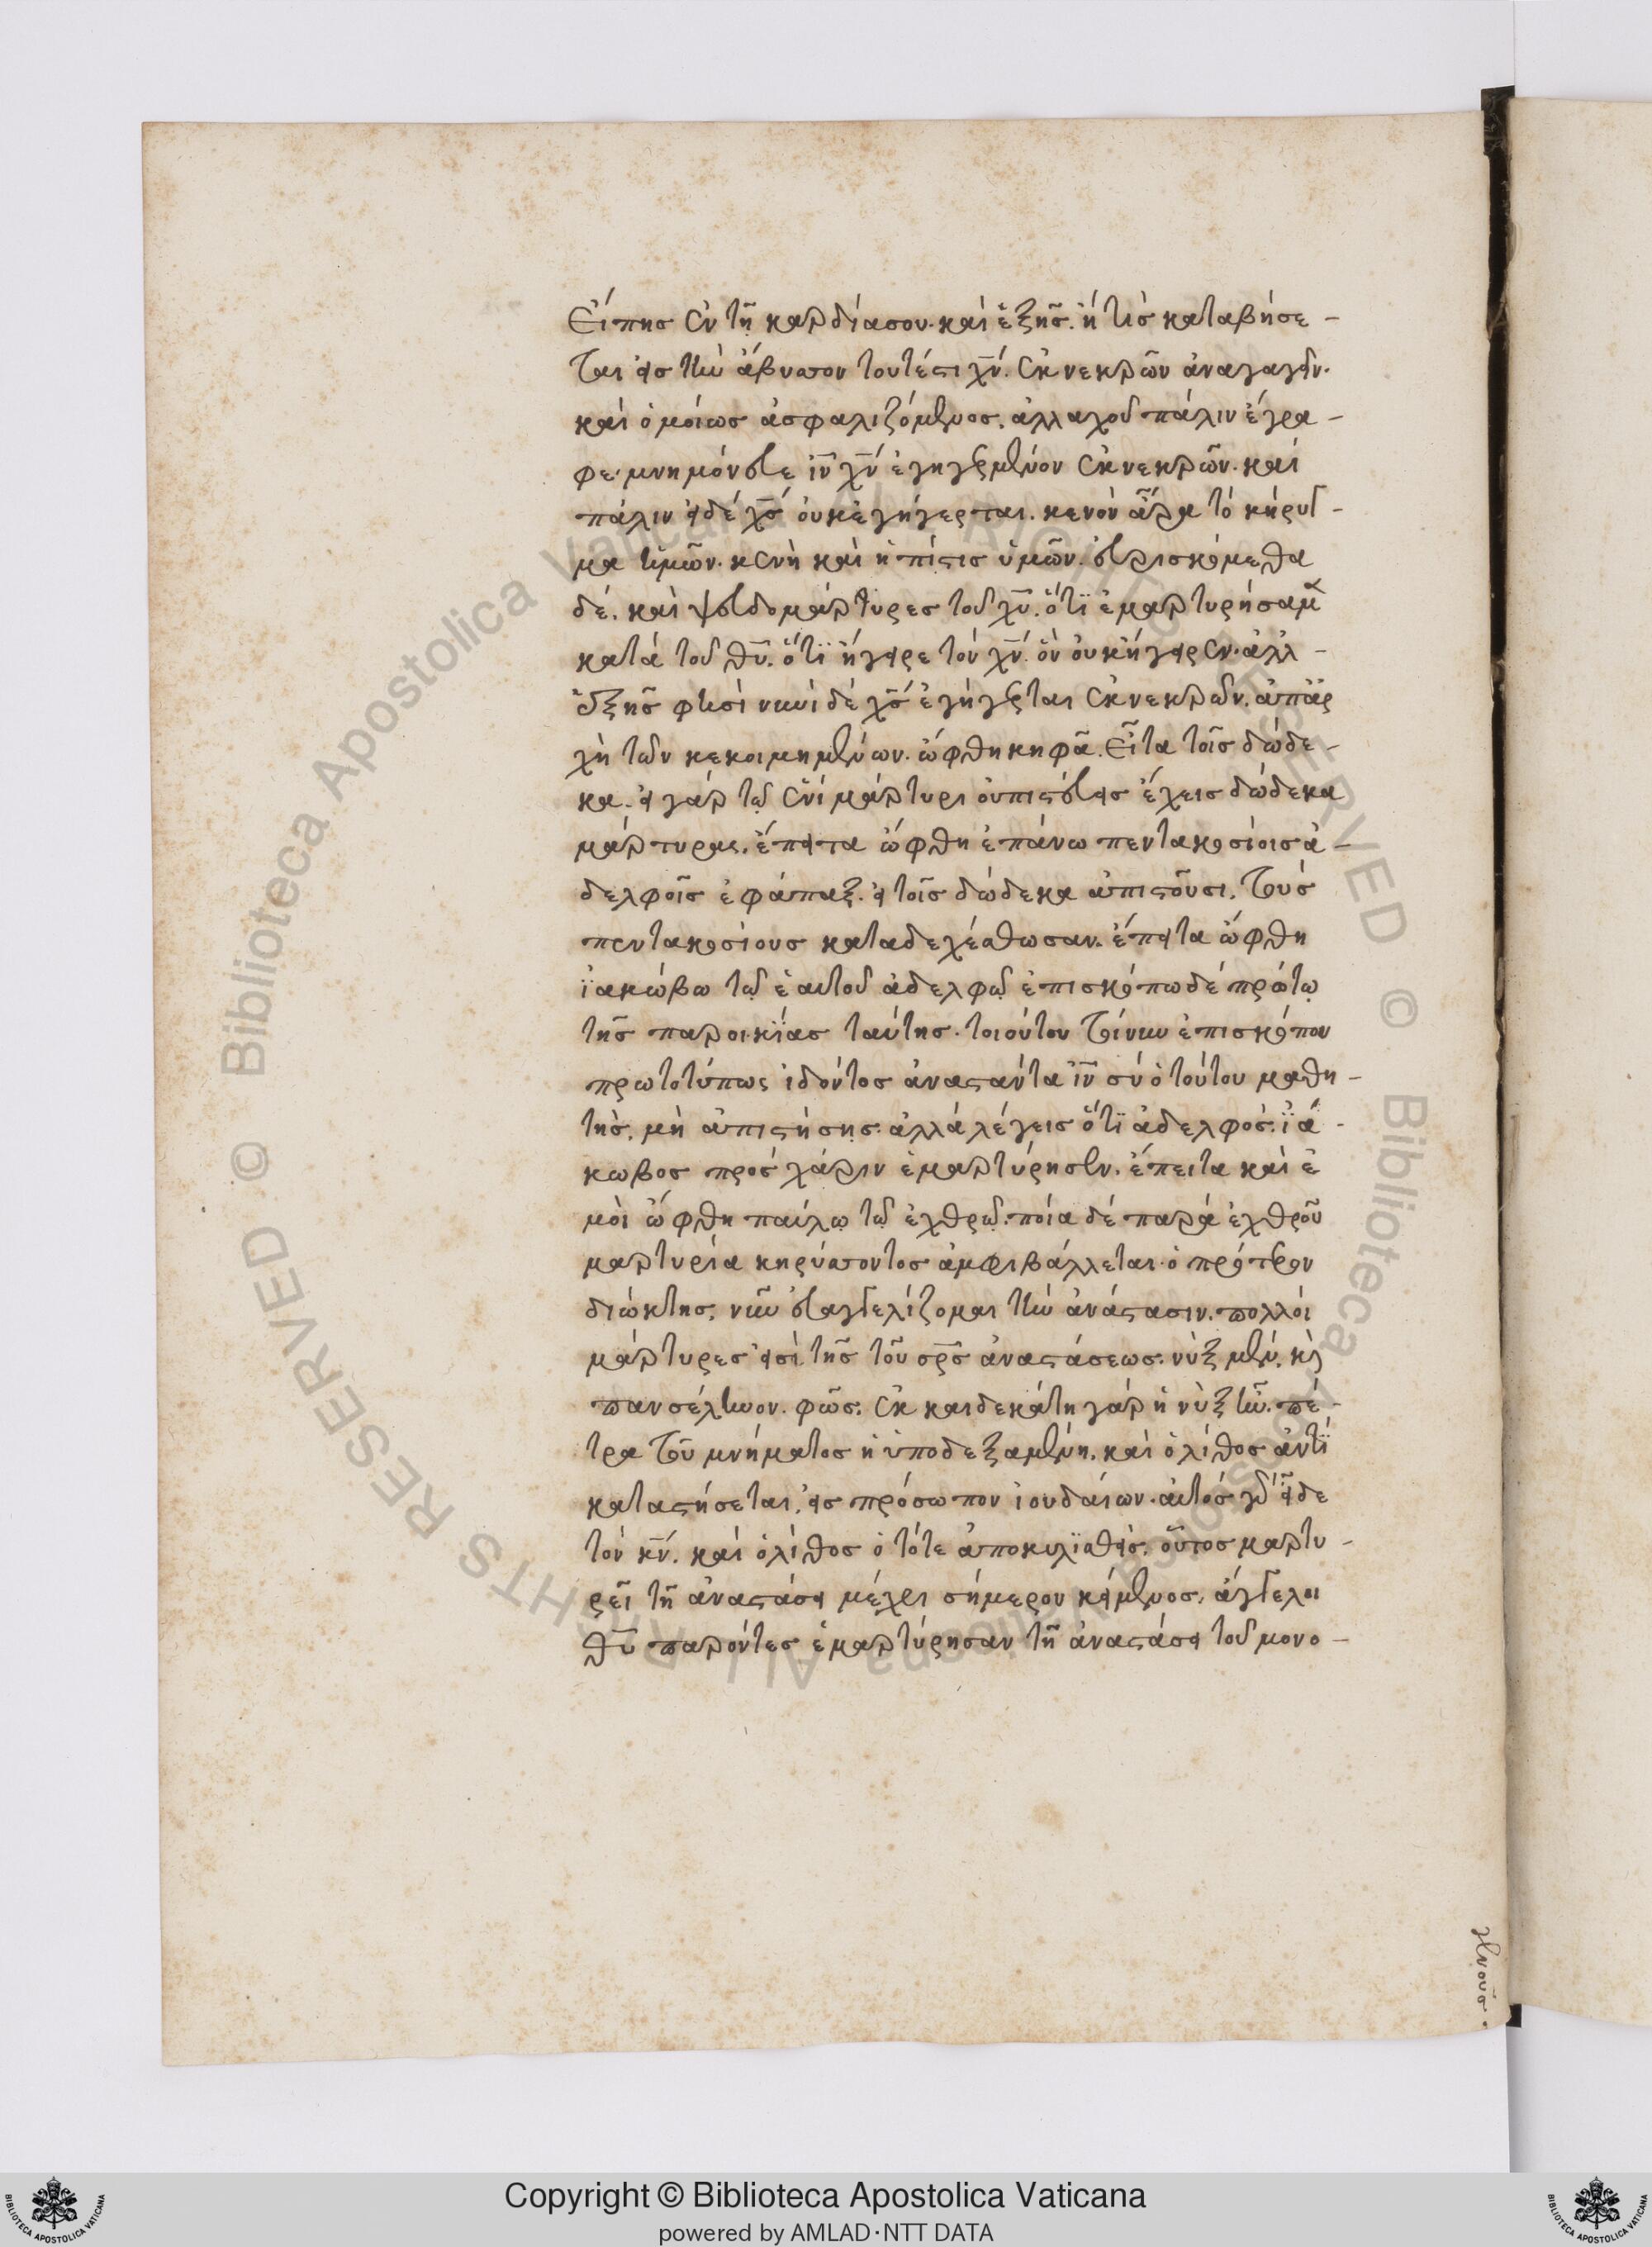 Εἴπης ἐν τῆ καρδία σου. καὶ ἑξῆς. ἤ τίς καταβήσε -
ται εἰς τὴν ἄβυσσον τουτέστι χν̅. ἐκ νεκρῶν ἀναγαγεῖν.
καὶ ὁμοίως ἀσφαλιζόμενος. ἀλλαχοῦ πάλιν ἔγρα -
φε· μνημόνευε ιν̅ χν̅ ἐγηγερμένον ἐκ νεκρῶν. καὶ
πάλιν εἰ δέ χς̅ οὐκ ἐγήγερται. κενὸν ἆρα τὸ κήρυγ -
μα ἡμῶν. κενὴ καὶ ἡ πίστις ὑμῶν. εὑρισκόμεθα
δέ. καὶ ψευδομάρτυρες τοῦ χυ̅. ὅτι ἐμαρτυρήσαμ
κατὰ τοῦ θυ̅. ὅτι ἤγειρε τὸν χν̅. ὃν οὐκ ἤγειρεν. ἀλλ -
ἑξῆς φησὶ νυνὶ δὲ χς̅ ἐγήγερται ἐκ νεκρῶν. ἀπαρ
χὴ τῶν κεκοιμημένων. ὤφθη κηφᾶ. Εἶτα τοῖς δώδε -
κα. εἰ γὰρ τῷ ἑνὶ μάρτυρι οὐ πιστεύεις ἔχεις δώδεκα
μάρτυρας. ἔπειτα ὤφθη ἐπάνω πεντακοσίοις ἀ -
δελφοῖς ἐφάπαξ. εἰ τοῖς δώδεκα ἀπιστοῦσι. τοὺς
πεντακοσίους καταδεχέσθωσαν. ἔπειτα ὤφθη
ϊακώβω τῷ ἑαυτοῦ ἀδελφῷ ἐπισκόπω δὲ πρώτῳ
τῆς παροικίας ταύτης. τοιούτου τοίνυν ἐπισκόπου
πρωτοτύπως ἰδόντος ἀναστάντα ιν̅ σὺ ὁ τούτου μαθη -
τής. μὴ ἀπιστήσῃς. ἀλλὰ λέγεις ὅτι ἀδελφὸς. ϊά -
κωβος πρὸς χάριν ἐμαρτύρησεν. ἔπειτα καὶ ἐ
μοὶ ὤφθη παύλῳ τῷ ἐχθρῷ. ποία δὲ παρὰ ἐχθροῦ
μαρτυρία κηρύσσοντος ἀμφιβάλλεται. ὁ πρότερον
διώκτης. νῦν εὐαγγελίζομαι τὴν ἀνάστασιν. πολλοὶ
μάρτυρες εἰσὶ τῆς τοῦ σρς̅ ἀναστάσεως. νὺξ μὲν. κ
πανσέληνον. φῶς. ἐκ καιδεκάτη γὰρ ἡ νὺξ ἦν. πέ -
τρα τοῦ μνήματος ἡ ὑποδεξαμένη. καὶ ὁ λίθος ἀντι
καταστήσεται. εἰς πρόσωπον ἰουδαίων. αὐτὸς γὰρ εἶδε
τὸν κν̅. καὶ ὁ λίθος ὁ τότε ἀποκυλϊσθείς. οὗτος μαρτυ -
ρεῖ τῆ ἀναστάσει μέχρι σήμερον κείμενος. ἄγγελοι
θυ̅ παρόντες ἐμαρτύρησαν τῆ ἀναστάσει τοῦ μονο -
γενοῦς.
Copyright © Biblioteca Apostolica Vaticana
powered by AMLAD·NTT DATA